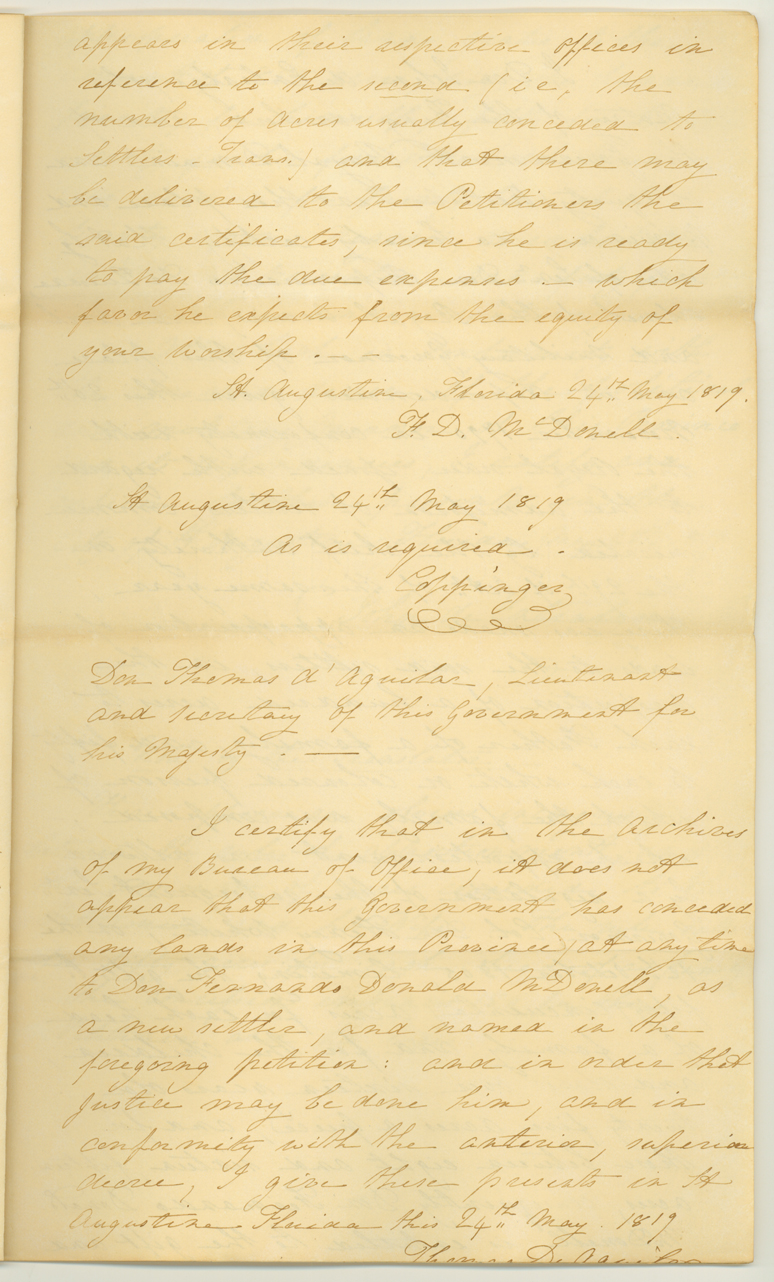 appears in their respective offices in
reference to the second (ie, the
number of Acres usually conceded to
Settlers - Trans.) and that there may
be delivered to the Petitioners the
said certificates, since he is ready
to pay the due expenses — which
favor he expects from the equity of
your Worship. — –
St. Augustine, Florida 24th May 1819.
F. D. McDonell.
St Augustine 24th May 1819
As is required.
Coppinger
Don Thomas d'Aguilar, Lieutenant
and secretary of this Government for
his Majesty. —
I certify that in the Archives
of my Bureau of Office, it does not
appear that this Government has conceded
any lands in this Province, at any time
to Don Fernando Donald McDonell, as
a new settler, and named in the
foregoing petition: and in order that
Justice may be done him, and in
conformity with the anterior, superior
decree, I give these presents in St
Augustine Florida this 24th May. 1819
Thomas De Aguilar